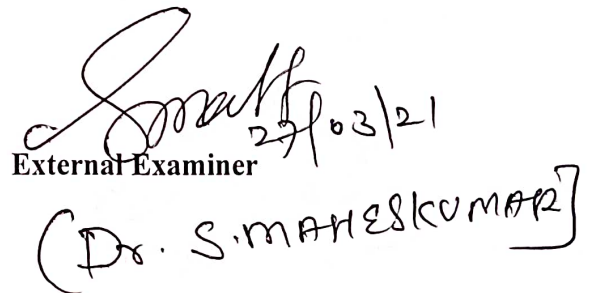 27/03/21
External Examiner
(Dr. S. MAHESKUMAR]